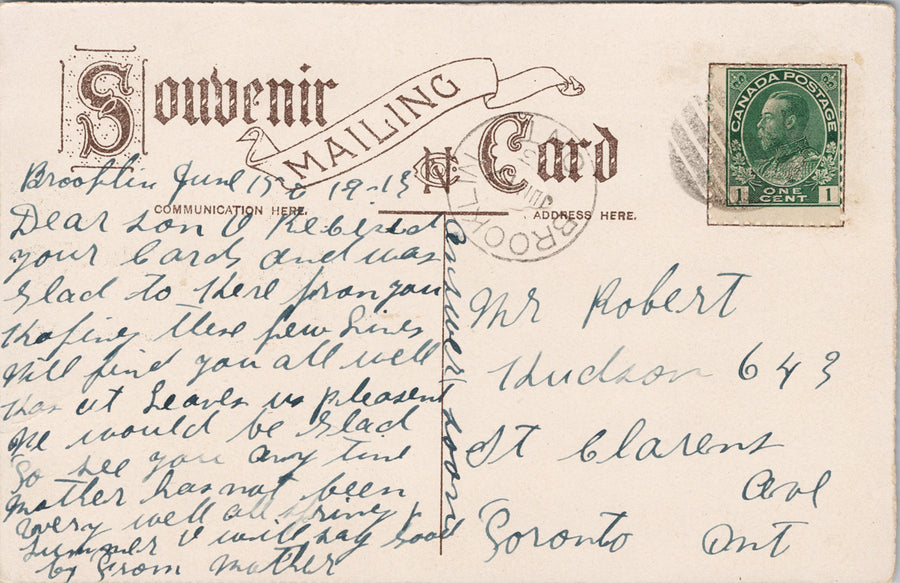 Souvenir
MAILING
Card
CANADA POSTAGE
1 ONE CENT 1
BROOKLIN
COMMUNICATION HERE.
ADDRESS HERE.
Brooklin June 19-13
Dear son I Rebeisd
your Cards and was
glad to Here from you
Hoping these few Lines
Will find you all well
Has it Leaves us pleasent
We would be glad
to see you any time
Mother has not been
very well all spring &
summer I will say Good
by From Mother
answer soon
Mr Robert
Hudson 643
St Clarens
Ave
Toronto Ont